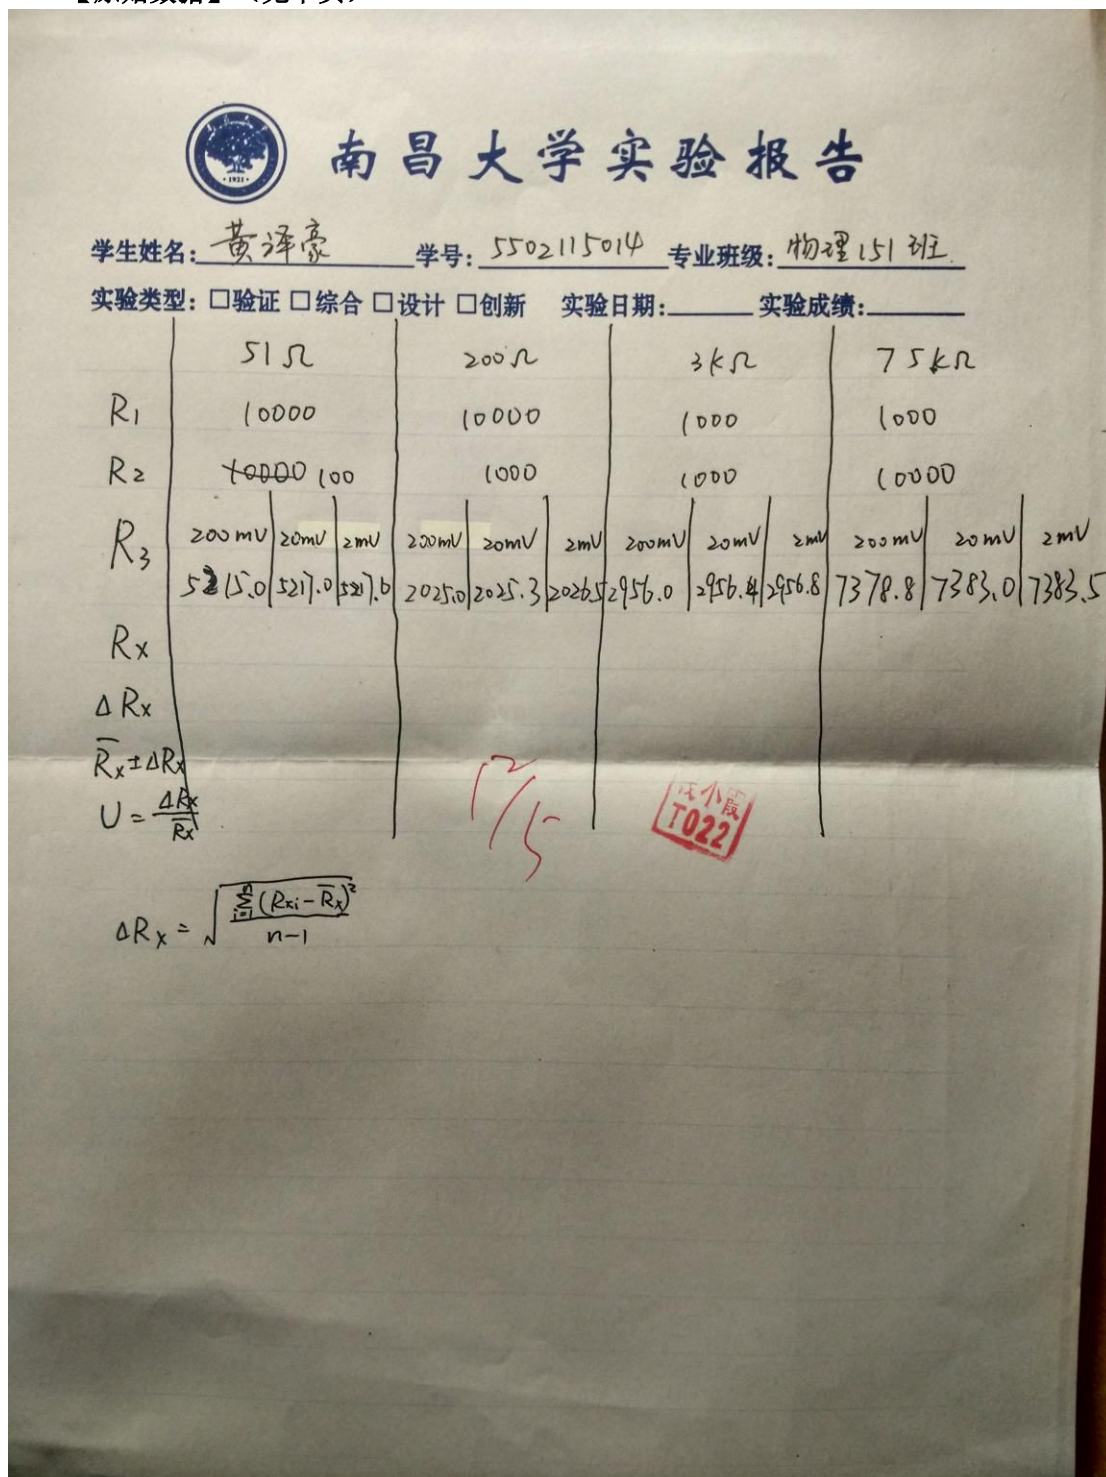 南昌大学实验报告
· 1921 ·
学生姓名: 黄泽豪 学号: 5502115014 专业班级: 物理151班.
实验类型: □验证 □综合 □设计 □创新 实验日期: 实验成绩:
51Ω 200Ω 3kΩ 75kΩ
R1 10000 10000 1000 1000
R2 10000 100 1000 1000 10000
R3 200mV 20mV 2mV 200mV 20mV 2mV 200mV 20mV 2mV 200mV 20mV 2mV
5215.0 5217.0 5217.6 2025.0 2025.3 2026.5 2956.0 2956.4 2956.8 7378.8 7383.0 7383.5
Rx
ΔRx
R̄x±ΔRx
U = ΔRx/R̄x
12/5
小霞
T022
ΔRx = √(∑(i=1, n)(Rxi−R̄x)²/(n−1))